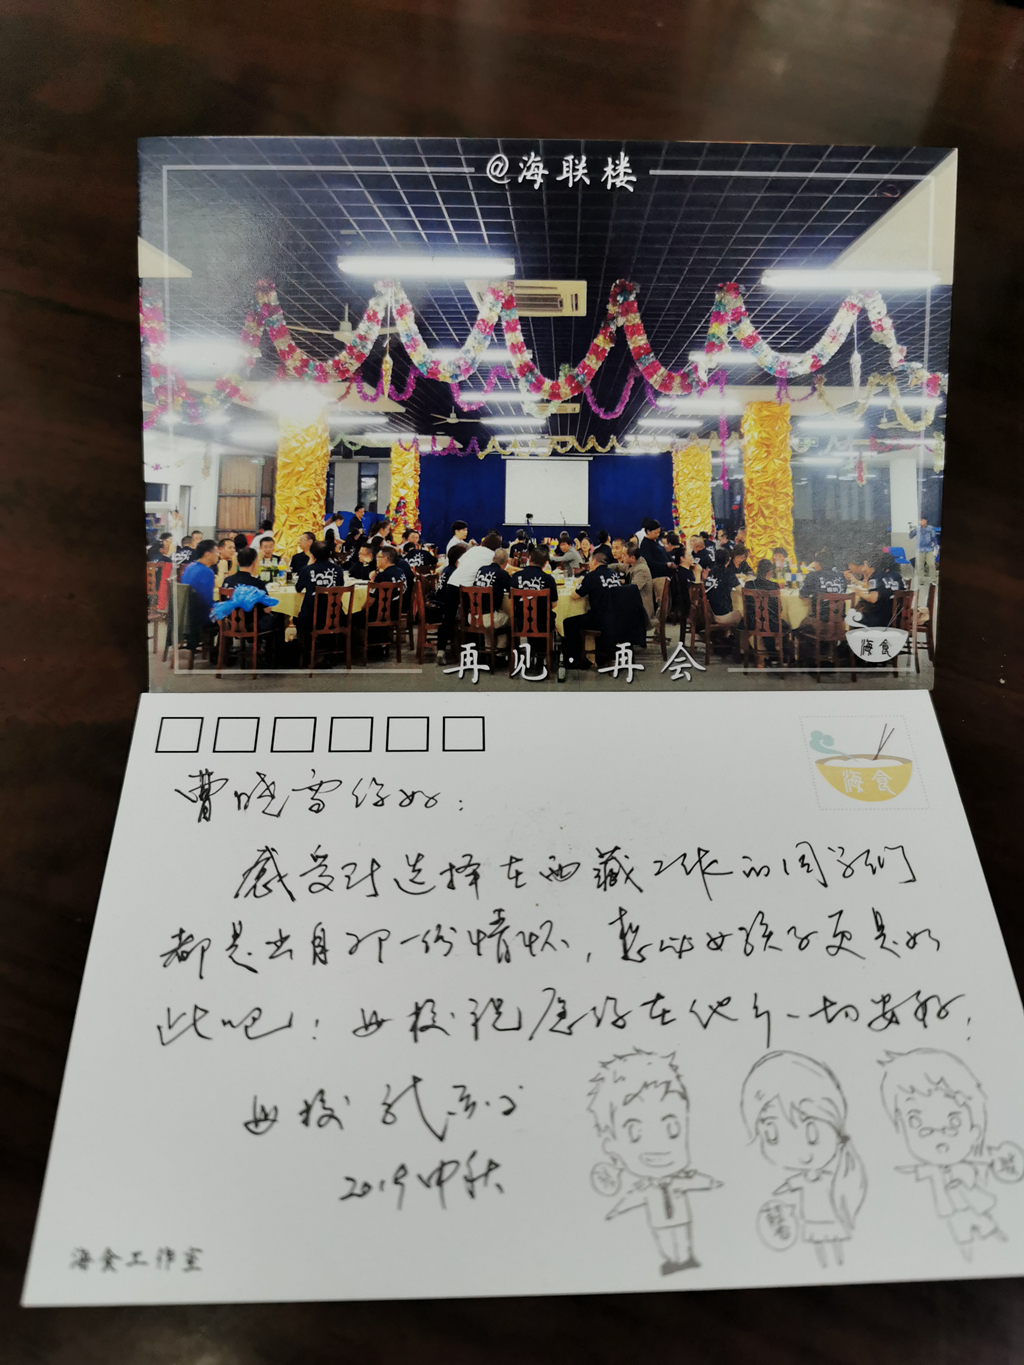 @海联楼
再见·再会
海食
海食
曹晓雪你好：
感受到选择在西藏工作的同学们
都是出自于一份情怀，想必女孩子更是如
此吧！母校祝愿你在他乡一切安好！
母校
2019中秋
海食工作室